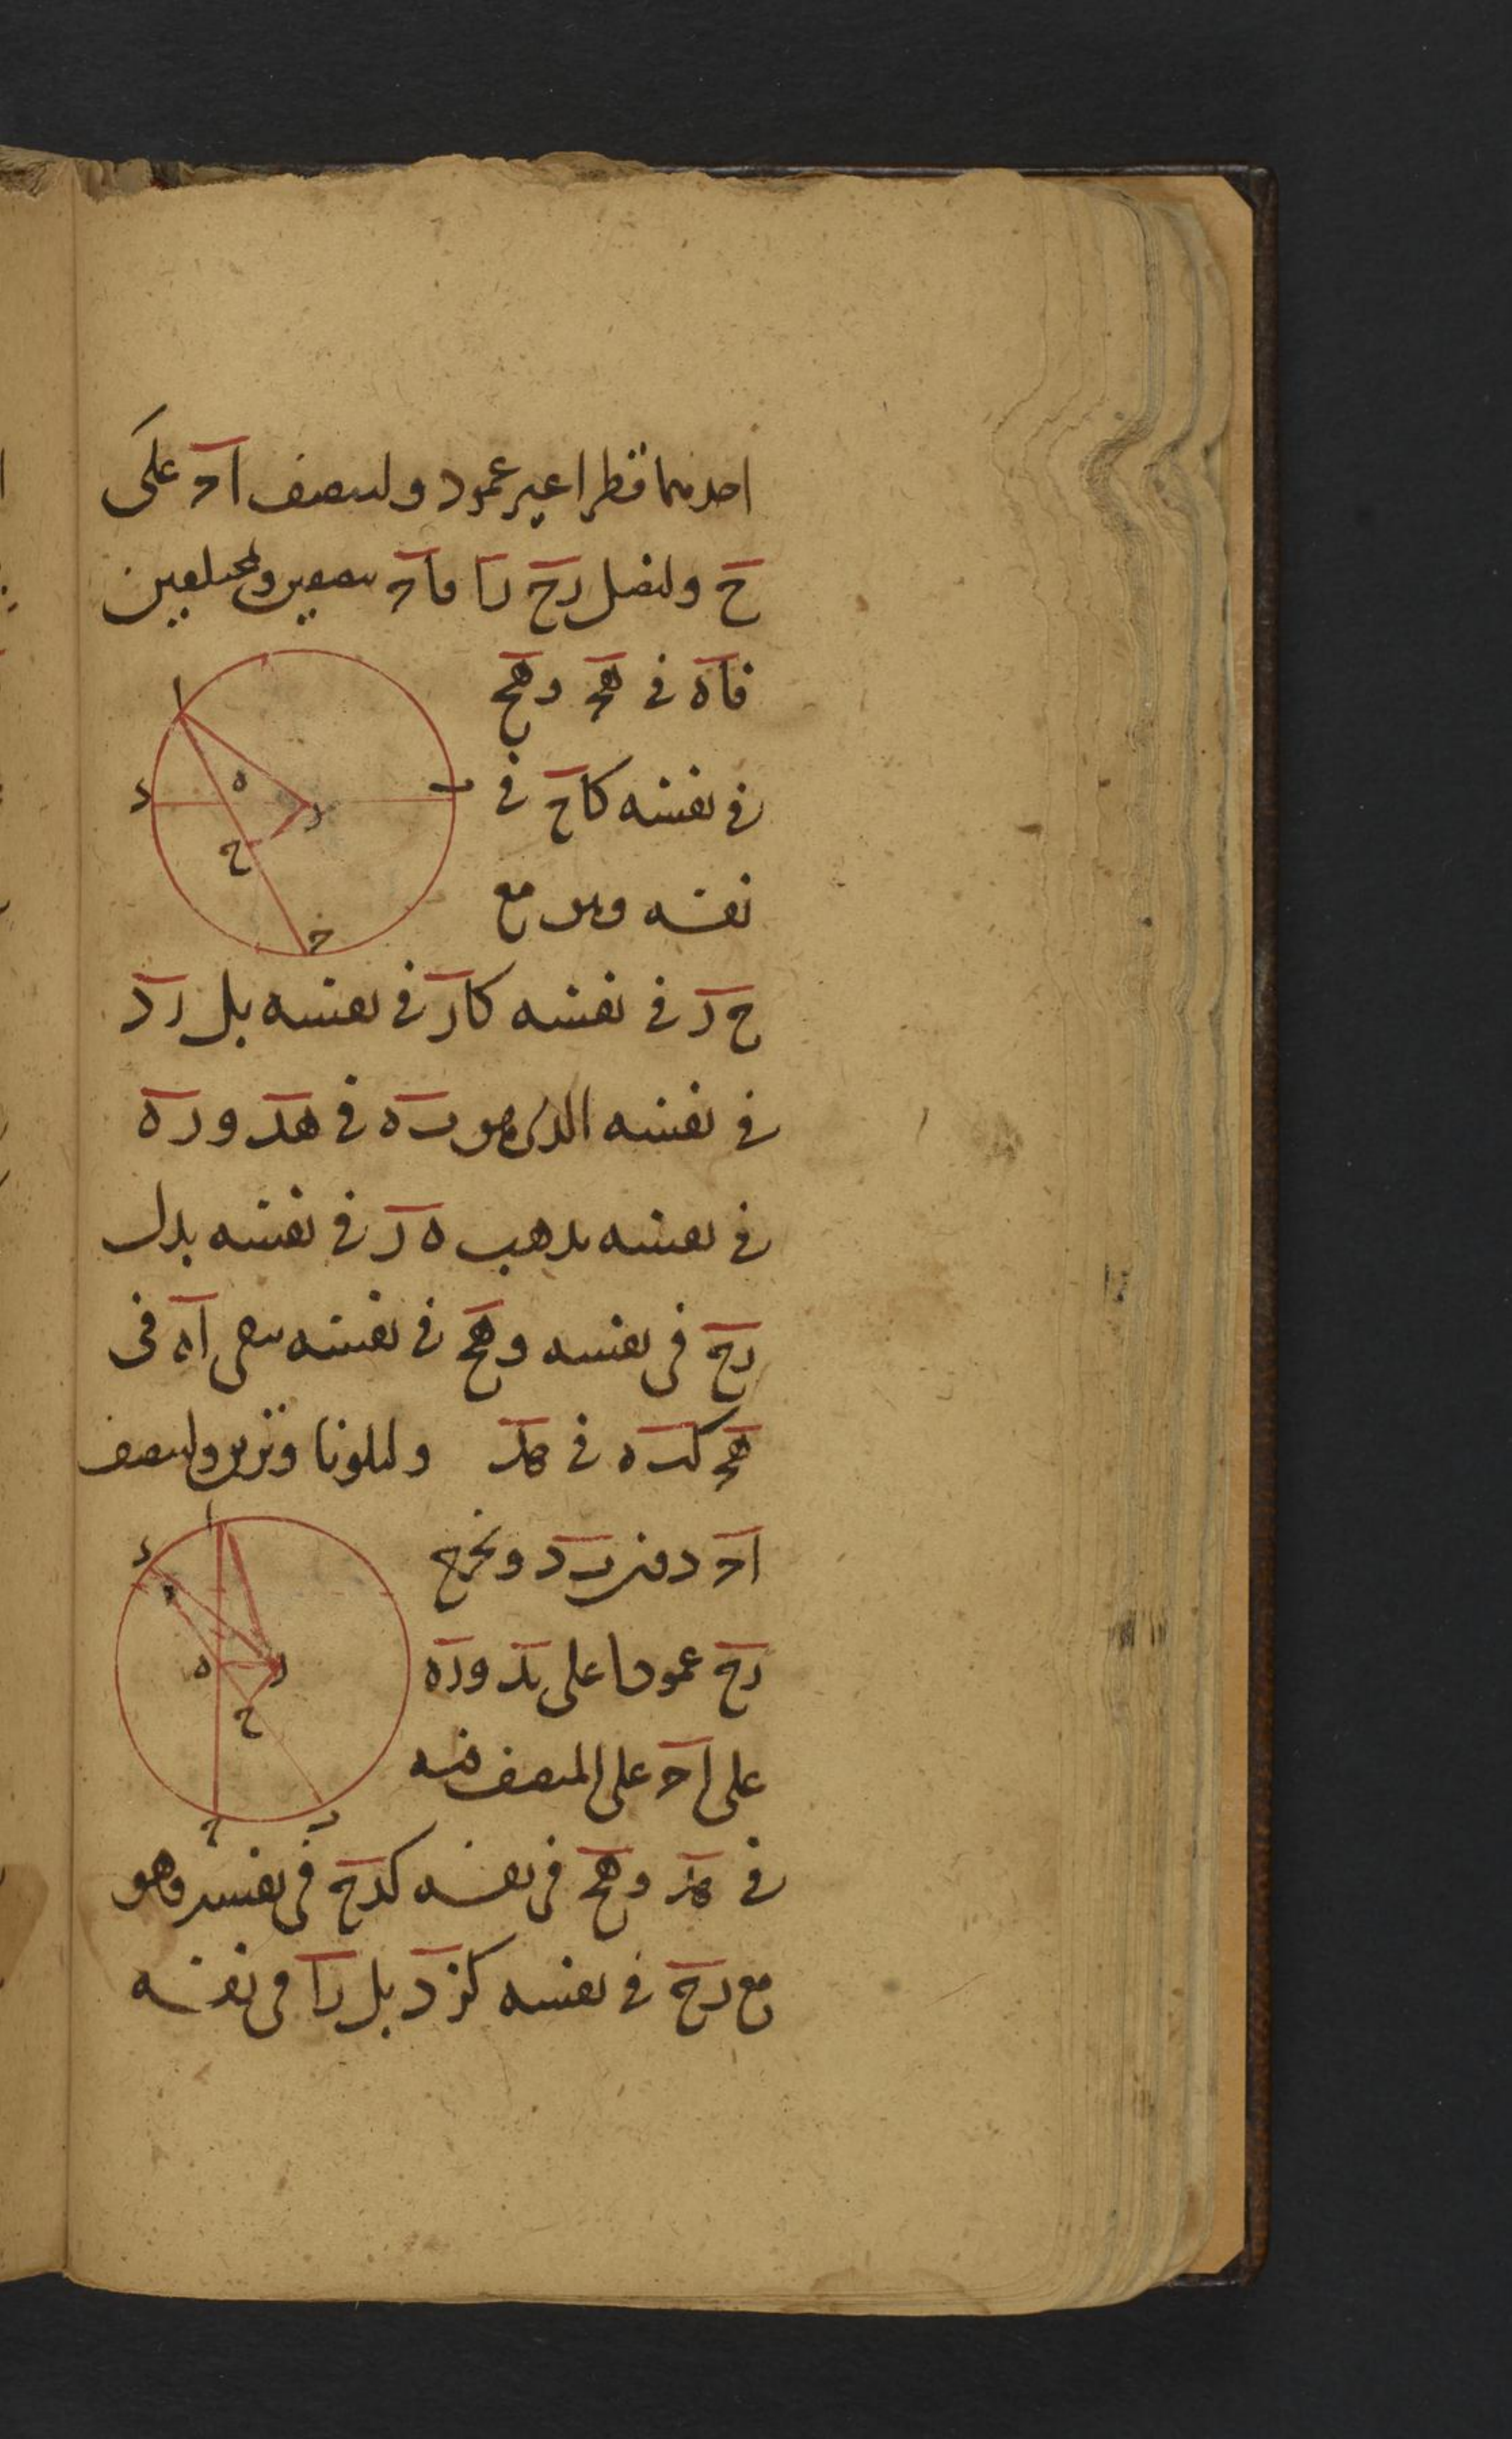 احدهما قطرا غير عمود ولينصف اح على
ح ولنصل رح را فاح بنصفين وبمختلفين
فاه في هح وهح
في نفسه كاح في
نفسه وهو مع
ح ر في نفسه كار في نفسه بل رد
في نفسه الذي هو به في هد وره
في نفسه يذهب ه ر في نفسه بدل
رح في نفسه وهح في نفسه يبقى اه في
هح كبه في هد وليكونا وترين ولينصف
اح دون بد ونخرج
رح عمودا على بد وره
على اح على المنصف فبه
في هد وهح في نفسه كدح في نفسه وهو
مع رح في نفسه كزد بل را في نفسه
ا
ه
د
ب
ر
ح
ح
ا
د
ه
ر
ح
ح
ب